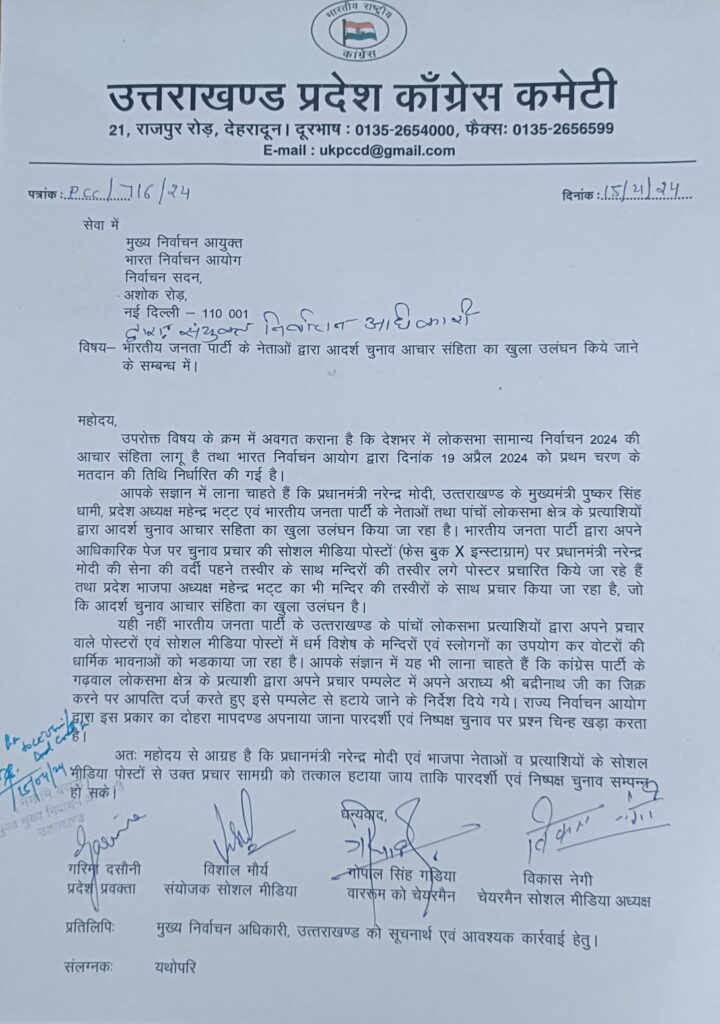 भारतीय राष्ट्रीय
कांग्रेस
उत्तराखण्ड प्रदेश काँग्रेस कमेटी
21, राजपुर रोड़, देहरादून। दूरभाष : 0135-2654000, फैक्सः 0135-2656599
E-mail : ukpccd@gmail.com
पत्रांक : PCC/716/24 दिनांक : 15/4/24
सेवा में
मुख्य निर्वाचन आयुक्त
भारत निर्वाचन आयोग
निर्वाचन सदन,
अशोक रोड़,
नई दिल्ली – 110 001
द्वाराः संयुक्त निर्वाचन अधिकारी
विषय– भारतीय जनता पार्टी के नेताओं द्वारा आदर्श चुनाव आचार संहिता का खुला उलंघन किये जाने
के सम्बन्ध में।
महोदय,
उपरोक्त विषय के क्रम में अवगत कराना है कि देशभर में लोकसभा सामान्य निर्वाचन 2024 की
आचार संहिता लागू है तथा भारत निर्वाचन आयोग द्वारा दिनांक 19 अप्रैल 2024 को प्रथम चरण के
मतदान की तिथि निर्धारित की गई है।
आपके सज्ञान में लाना चाहते हैं कि प्रधानमंत्री नरेन्द्र मोदी, उत्तराखण्ड के मुख्यमुंत्री पुष्कर सिंह
धामी, प्रदेश अध्यक्ष महेन्द्र भट्ट एवं भारतीय जनता पार्टी के नेताओं तथा पांचों लोकसभा क्षेत्र के प्रत्याशियों
द्वारा आदर्श चुनाव आचार सहिता का खुला उलंघन किया जा रहा है। भारतीय जनता पार्टी द्वारा अपने
आधिकारिक पेज पर चुनाव प्रचार की सोशल मीडिया पोस्टों (फेस बुक X इन्स्टाग्राम) पर प्रधानमंत्री नरेन्द्र
मोदी की सेना की वर्दी पहने तस्वीर के साथ मन्दिरों की तस्वीर लगे पोस्टर प्रचारित किये जा रहे हैं
तथा प्रदेश भाजपा अध्यक्ष महेन्द्र भट्ट का भी मन्दिर की तस्वीरों के साथ प्रचार किया जा रहा है, जो
कि आदर्श चुनाव आचार संहिता का खुला उलंघन है।
यही नहीं भारतीय जनता पार्टी के उत्तराखण्ड के पांचों लोकसभा प्रत्याशियों द्वारा अपने प्रचार
वाले पोस्टरों एवं सोशल मीडिया पोस्टों में धर्म विशेष के मन्दिरों एवं स्लोगनों का उपयोग कर वोटरों की
धार्मिक भावनाओं को भडकाया जा रहा है। आपके संज्ञान में यह भी लाना चाहते हैं कि कांग्रेस पार्टी के
गढ़वाल लोकसभा क्षेत्र के प्रत्याशी द्वारा अपने प्रचार पम्पलेट में अपने अराध्य श्री बद्रीनाथ जी का जिक्र
करने पर आपत्ति दर्ज करते हुए इसे पम्पलेट से हटाये जाने के निर्देश दिये गये। राज्य निर्वाचन आयोग
द्वारा इस प्रकार का दोहरा मापदण्ड अपनाया जाना पारदर्शी एवं निष्पक्ष चुनाव पर प्रश्न चिन्ह खड़ा करता
है।
अतः महोदय से आग्रह है कि प्रधानमंत्री नरेन्द्र मोदी एवं भाजपा नेताओं व प्रत्याशियों के सोशल
मीडिया पोस्टों से उक्त प्रचार सामग्री को तत्काल हटाया जाय ताकि पारदर्शी एवं निष्पक्ष चुनाव सम्पन्न
हो सके।
15/04/24
उत्तराखण्ड
धन्यवाद,
विकास नेगी
गरिमा दसौनी विशाल मौर्य गोपाल सिंह गडिया विकास नेगी
प्रदेश प्रवक्ता संयोजक सोशल मीडिया वाररूम को चेयरमैन चेयरमैन सोशल मीडिया अध्यक्ष
प्रतिलिपिः मुख्य निर्वाचन अधिकारी, उत्तराखण्ड को सूचनार्थ एवं आवश्यक कार्रवाई हेतु।
संलग्नकः यथोपरि